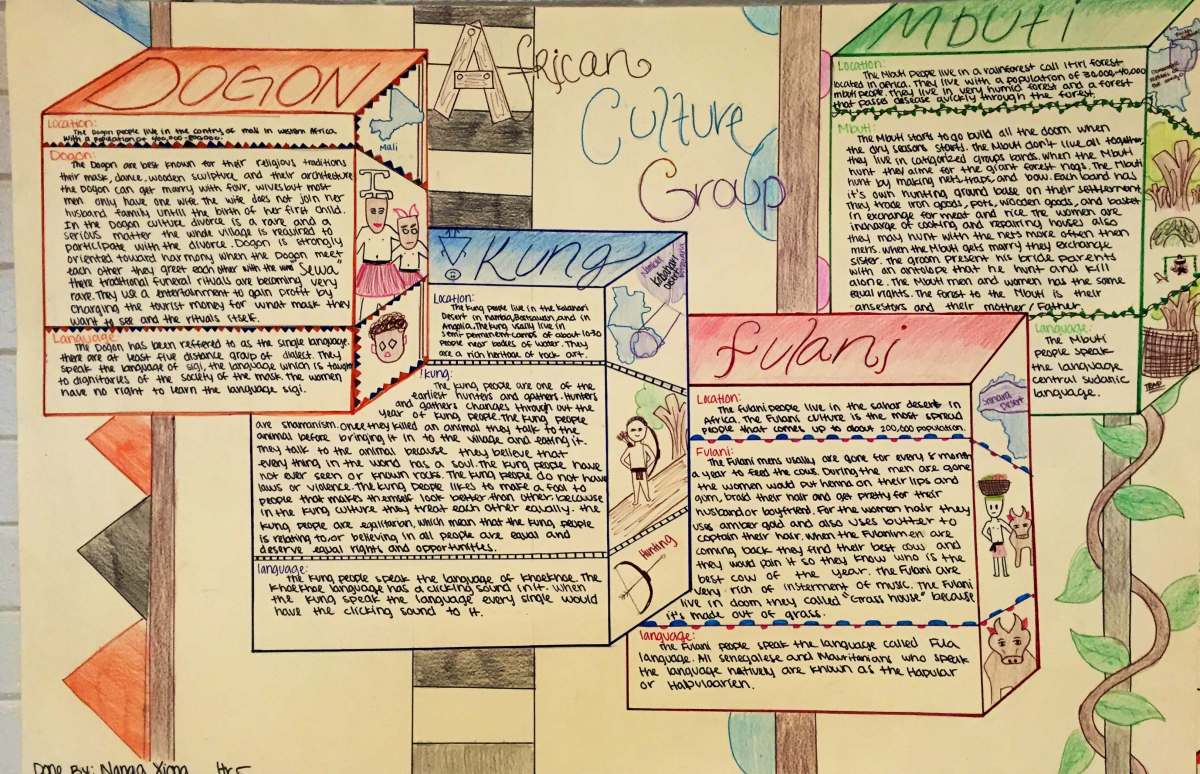 African
Culture
Group
DOGON
Location:
The Dogon people live in the contry of mali in western Africa.
With a population of 400,000-800,000.
Mali
Dogon:
The Dogon are best known for their religious traditions
their mask, dance, wooden sculpture and their architecture
the Dogon can get marry with four, wives but most
men only have one wife. The wife does not join her
husband family untill the birth of her first child.
In the Dogon culture divorce is a rare and a
serious matter the whole village is required to
participate with the divorce. Dogon is strongly
oriented toward harmony when the Dogon meet
each other they greet each other with the word Sewa
there traditional funeral rituals are becoming very
rare. They use a entertainment to gain profit by
Charging the tourist money for what mask they
want to see and the rituals itself.
Language:
The Dogon has been reffered to as the single language.
there are at least five distance group of dialect. They
speak the language of sigi, the language which is taught
to dignitories of the society of the mask. The women
have no right to learn the language sigi.
!Kung
Location:
The Kung people live in the Kalahari
Desert in Namiba, Botsawan, and in
Angolia. The Kung usally live in
semi-permanent camps of about 10-30
People near bodies of water. They
are a rich heritage of rock art.
Kalahari
Desert
!kung:
The Kung people are one of the
earliest hunters and gathers. Hunters
and gathers changes through out the
year of Kung people. The Kung people
are shamanism. Once they killed an animal they talk to the
animal before bringing it in to the village and eating it.
They talk to the animal because they believe that
everything in the world has a soul. The Kung people have
not ever seen or known rocks. The Kung people do not have
laws or violence. The Kung people likes to make a fool to
people that makes themself look better than other because
in the Kung culture they treat each other equally. the
Kung people are egilitarian, which mean that the Kung people
is relating to or believing in all people are equal and
deserve equal rights and opportunities.
Hunting
language:
The Kung people speak the language of Khoekhoe. The
Khoekhoe language has a clicking sound in it. When
the Kung speak the language every single would
have the clicking sound to it.
fulani
Location:
The fulani people live in the sahar desert in
Africa. The Fulani culture is the most spread
people that comes up to about 200,000 population.
Sahara
Desert
Fulani:
The Fulani mens usally are gone for every 8 month
a year to feed the cows. During the men are gone
the women would put henna on their lips and
gum, braid their hair and get pretty for their
husband or boyfriend. For the women hair they
uses amber gold and also uses butter to
captain their hair. When the Fulani men are
coming back they find their best cow and
they would pain it so they know who is the
best cow of the year. The Fulani are
very rich of insterment of music. The Fulani
live in doom they called "Grass house" because
it's made out of grass.
language:
The Fulani people speak the language called Fula
language. All Senegalese and Mauritanians who speak
the language natively are known as the Hapular
or Halpulaarien.
Mbuti
Location:
The Mbuti people live in a rainforest call itiri forest
located in Africa. They live with a population of 30,000-40,000
mbuti people they live in very humid forest and a forest
that passes disease quickly through the forest.
Mbuti:
The Mbuti starts to go build all the doom when
the dry seasons starts. The Mbuti don't live all together,
they live in catigorized groups bands. When the Mbuti
hunt they aime for the giant forest hogs. The Mbuti
hunt by making nets, traps, and bow. Each band has
it's own hunting ground base on their settlement
They trade iron goods, pots, wooden goods, and basket
in exchange for meat and rice. The women are
incharge of cooking and repairing houses also
they may hunt with the nets more often then
mens. When the Mbuti gets marry they exchange
sister. The groom present his bride parents
with an antilope that he hunt and kill
alone. The Mbuti men and women has the same
equal rights. The forest to the Mbuti is their
ancestors and their mother/Father.
Language:
The Mbuti
people speak
the language
central sudanic
language.
TRAP
Done By: Nanga Xiong Hr 5